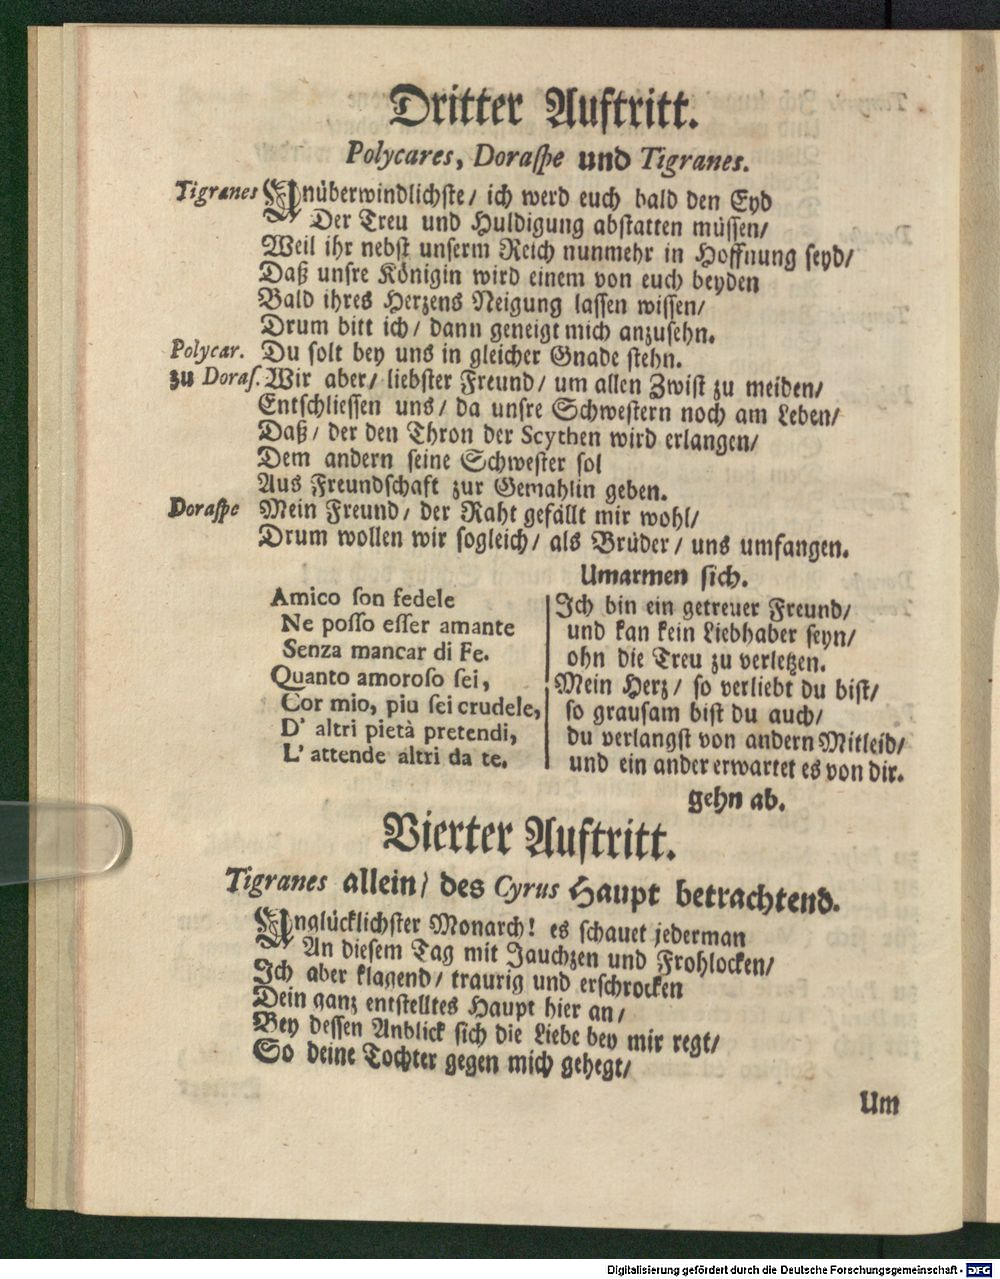 Dritter Auftritt.
Polycares, Doraspe und Tigranes.
Tigranes Unüberwindlichste/ ich werd euch bald den Eyd
Der Treu und Huldigung abstatten müssen/
Weil ihr nebst unserm Reich nunmehr in Hoffnung seyd/
Daß unsre Königin wird einem von euch beyden
Bald ihres Herzens Neigung lassen wissen/
Drum bitt ich/ dann geneigt mich anzusehn.
Polycar. Du solt bey uns in gleicher Gnade stehn.
zu Doras. Wir aber/ liebster Freund/ um allen Zwist zu meiden/
Entschliessen uns/ da unsre Schwestern noch am Leben/
Daß/ der den Thron der Scythen wird erlangen/
Dem andern seine Schwester sol
Aus Freundschaft zur Gemahlin geben.
Doraspe Mein Freund/ der Raht gefällt mir wohl/
Drum wollen wir sogleich/ als Brüder/ uns umfangen.
Umarmen sich.
Amico son fedele
Ne posso esser amante
Senza mancar di Fe.
Quanto amoroso sei,
Cor mio, piu sei crudele,
D' altri pietà pretendi,
L' attende altri da te.
Ich bin ein getreuer Freund/
und kan kein Liebhaber seyn/
ohn die Treu zu verletzen.
Mein Herz/ so verliebt du bist/
so grausam bist du auch/
du verlangst von andern Mitleid/
und ein ander erwartet es von dir.
gehn ab.
Vierter Auftritt.
Tigranes allein/ des Cyrus Haupt betrachtend.
Unglücklichster Monarch! es schauet jederman
An diesem Tag mit Jauchzen und Frohlocken/
Ich aber klagend/ traurig und erschrocken
Dein ganz entstelltes Haupt hier an/
Bey dessen Anblick sich die Liebe bey mir regt/
So deine Tochter gegen mich gehegt/
Um
Digitalisierung gefördert durch die Deutsche Forschungsgemeinschaft - DFG